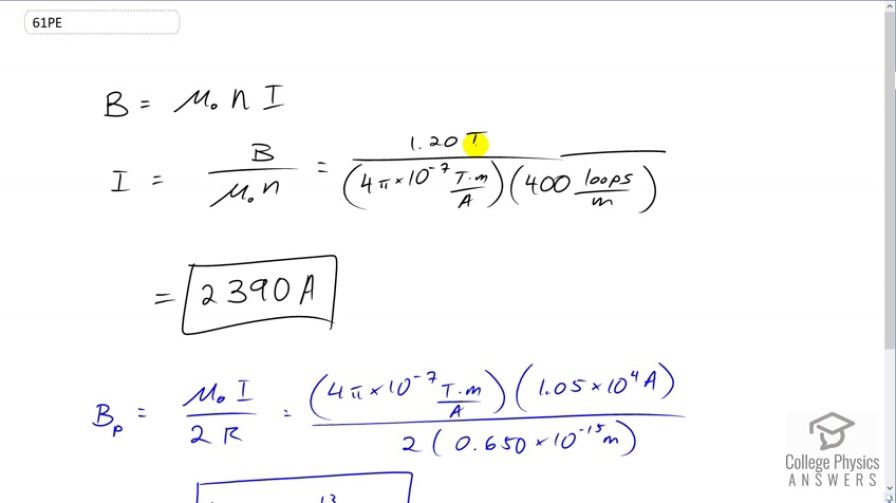 61PE
B = μ₀ n I
I = B / μ₀ n = 1.20 T / (4π × 10⁻⁷ T·m/A)(400 loops/m)
= 2390 A
Bₚ = μ₀ I / 2 R = (4π × 10⁻⁷ T·m/A)(1.05 × 10⁴ A) / 2 (0.650 × 10⁻¹⁵ m)
13
College Physics
ANSWERS